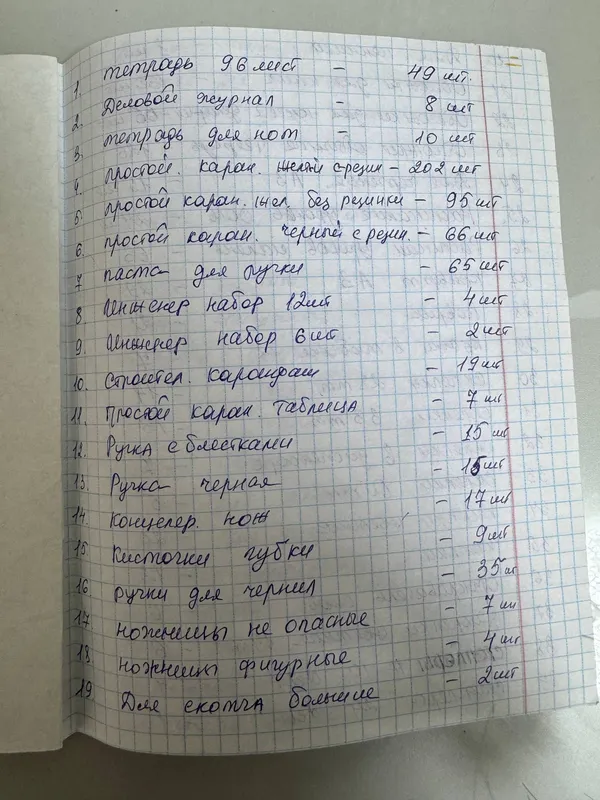 1. тетрадь 96 лист - 49 шт.
2. Деловой журнал - 8 шт
3. тетрадь для нот - 10 шт
4. простой. каран. желтый с резин - 202 шт
5. простой каран. жел. без резинки - 95 шт
6. простой каран. черный с резин. - 66 шт
7 паста для ручки - 65 шт
8. Инженер набор 12шт - 4 шт
9. Инженер набор 6 шт - 2 шт
10. Строител. карандаш - 19 шт
11. Простой каран. таблица - 7 шт
12. Ручка с блестками - 15 шт
13. Ручка черная - 15 шт
14. Концеляр. нож - 17 шт
15 Кисточки губки - 9 шт
16 ручки для чернил - 35 шт
17 ножницы не опасные - 7 шт
18 ножницы фигурные - 4 шт
19 Для скотча большие - 2 шт